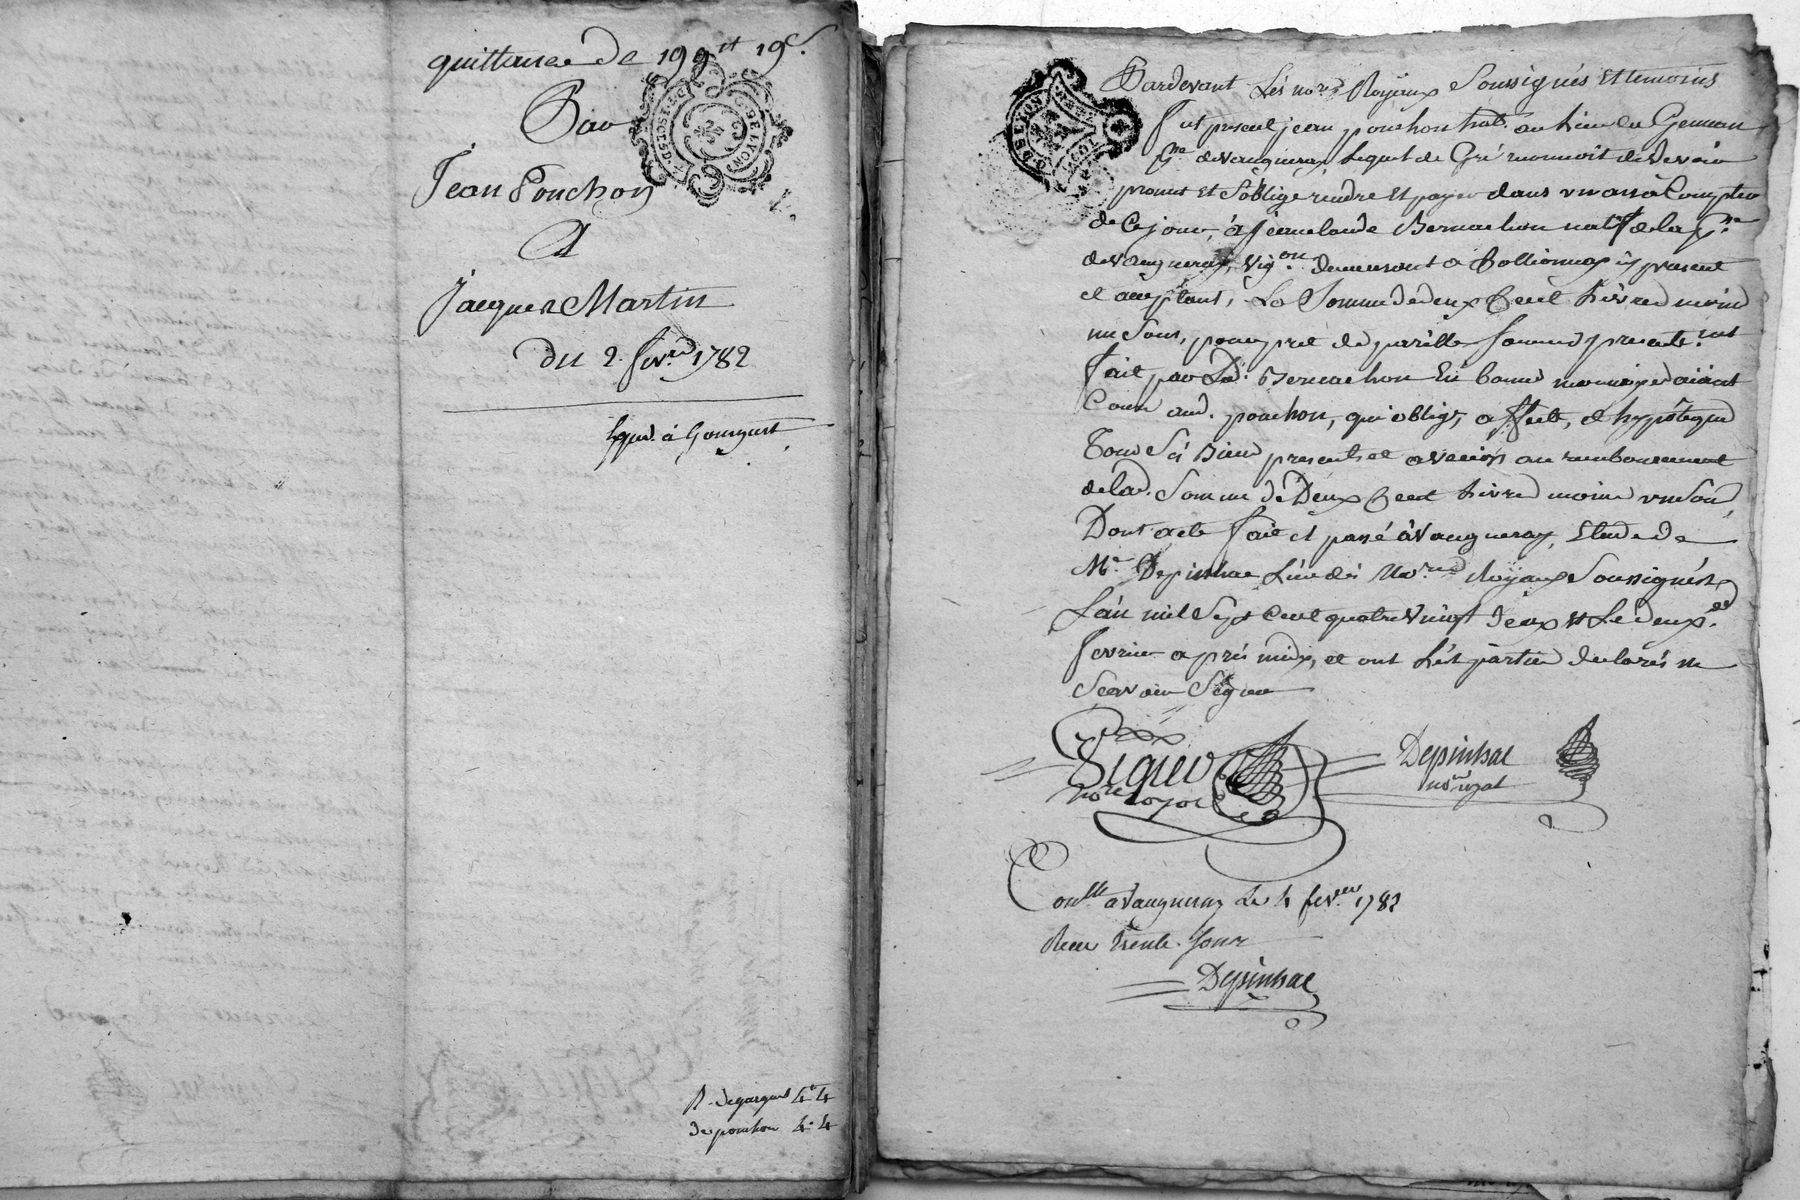 quittance de 199tt 19s.
Par
Jean Ponchon
A
Jacques Martin
du 2. fevr. 1782
Expéd. à
R. de jacques 4tt 4
de ponchon 4. 4
G. DE LYON
Pardevant Les nores Royaux Soussignés Et temoins
fut present jean ponchon hab. au lieu du
pse. de vaugneray, Lequel de Gré reconnoit de devoir
promet et S'oblige rendre et payer dans un an à Compter
de Ce jour, à jean claude Bernachon natif de la pse.
de vaugneray, vigon. demeurant a Pollionnay icy present
et acceptant, La Somme de deux Cent Livres moins
un Sous, pour pret de pareille Somme presentemt.
fait par Led. Bernachon En bonnes monnoyes aiant
Cours aud. ponchon, qui oblige, affecte, et hypotèque
Tous Ses Biens presents et avenirs au remboursement
de lad. Somme de Deux Cent Livres moins un Sou,
Dont acte fait et passé à Vaugneray, Etude de
Me. Depinhac L'un des Nores Royaux Soussignés
L'an mil Sept Cent quatre vingt deux et Le deuxe.
fevrier après midy, et ont Les parties declarés ne
Scavoir Signer
nore royal
Depinhac
nore royal
Conllé a Vaugneray Le 4 fevrier 1782
Recu trente Sous
Depinhac